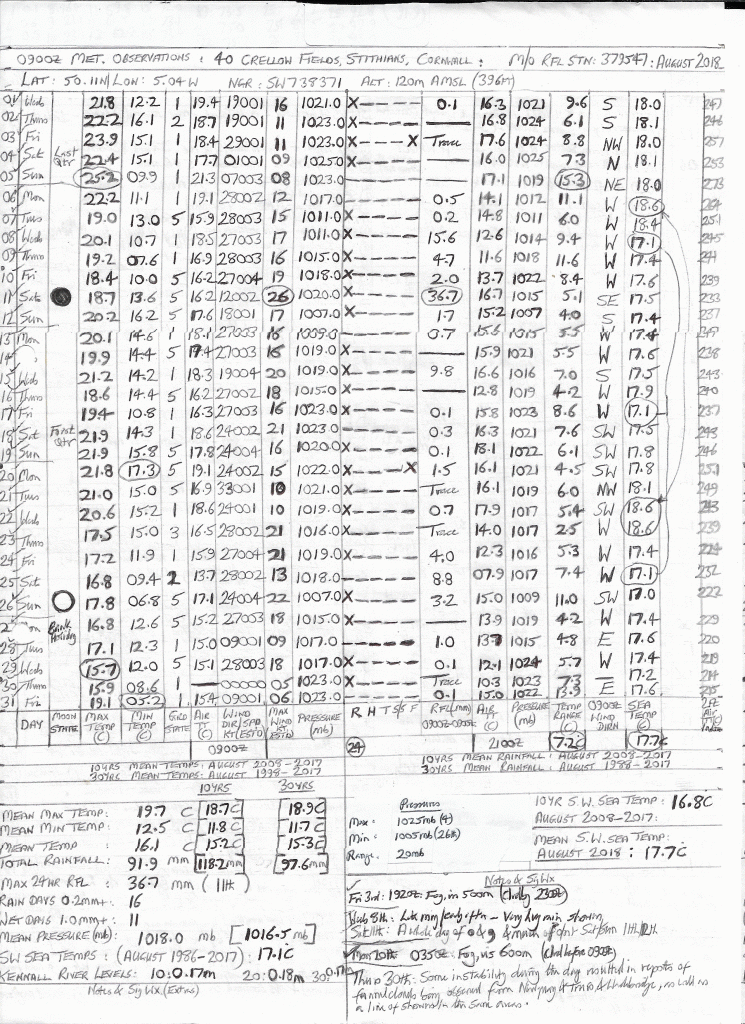 0900Z MET. OBSERVATIONS : 40 CRELLOW FIELDS, STITHIANS, CORNWALL : M/O RFL STN: 379547: AUGUST 2018
LAT: 50.11N/LON: 5.04W NGR: SW738371 ALT: 120m AMSL (396FT)
01 Wed 21.8 12.2 1 19.4 19001 16 1021.0 X---- 0.1 16.3 1021 9.6 S 18.0 247
02 Thurs 22.2 16.1 2 18.7 19001 11 1023.0 X---- — 16.8 1024 6.1 S 18.1 246
03 Fri 23.9 15.1 1 18.4 29001 11 1023.0 X---- X Trace 17.6 1024 8.8 NW 18.0 257
04 Sat Last Qtr 22.4 15.1 1 17.7 01001 09 1025.0 X---- — 16.0 1025 7.3 N 18.1 253
05 Sun 25.2 09.9 1 21.3 07003 08 1023.0 — 17.1 1019 15.3 NE 18.0 273
06 Mon 22.2 11.1 1 19.1 28002 12 1017.0 0.5 14.1 1012 11.1 W 18.6
07 Tues 19.0 13.0 5 15.9 28003 15 1011.0 X---- 0.2 14.8 1011 6.0 W 18.4 251
08 Wed 20.1 10.7 1 18.5 27003 17 1011.0 X---- 15.6 12.6 1014 9.4 W 17.1 245
09 Thurs 19.2 07.6 1 16.9 28003 16 1015.0 X---- 4.7 11.6 1018 11.6 W 17.4 241
10 Fri 18.4 10.0 5 16.2 27004 19 1018.0 X---- 2.0 13.7 1022 8.4 W 17.6 239
11 Sat 18.7 13.6 5 16.2 12002 26 1020.0 X---- 36.7 16.7 1015 5.1 SE 17.5 233
12 Sun 20.2 16.2 5 17.6 18001 17 1007.0 X---- 1.7 15.2 1007 4.0 S 17.4 237
13 Mon 20.1 14.6 1 18.1 27003 16 1009.0 0.7 15.6 1015 5.5 W 17.4
14 19.9 14.4 5 17.4 27003 16 1019.0 X---- — 15.9 1021 5.5 W 17.6 238
15 Wed 21.2 14.2 1 18.3 19004 20 1019.0 X---- 9.8 16.6 1016 7.0 S 17.5 243
16 Thurs 18.6 14.4 5 16.2 27002 18 1015.0 X---- — 12.8 1019 4.2 W 17.9 240
17 Fri 19.4 10.8 1 16.3 27003 16 1023.0 X---- 0.1 15.8 1023 8.6 W 17.1 237
18 Sat First Qtr 21.9 14.3 1 18.6 24002 21 1023.0 0.3 16.3 1021 7.6 SW 17.5 243
19 Sun 21.9 15.8 5 17.8 24004 16 1020.0 X---- 0.1 18.1 1022 6.1 SW 17.8 246
20 Mon 21.8 17.3 5 19.1 24002 15 1022.0 X---- X 1.5 16.1 1021 4.5 SW 17.8 251
21 Tues 21.0 15.0 5 16.9 33001 10 1021.0 X---- Trace 16.1 1019 6.0 NW 18.1 249
22 Wed 20.6 15.2 1 18.6 24001 10 1019.0 X---- 0.7 17.9 1017 5.4 SW 18.6 243
23 Thurs 17.5 15.0 3 16.5 28002 21 1016.0 X---- Trace 14.0 1017 2.5 W 18.6 239
24 Fri 17.2 11.9 1 15.9 27004 21 1019.0 X---- 4.0 12.3 1016 5.3 W 17.4 224
25 Sat 16.8 09.4 2 13.7 28002 13 1018.0 X---- 8.8 07.9 1017 7.4 W 17.1 232
26 Sun 17.8 06.8 5 17.1 24004 22 1007.0 X---- 3.2 15.0 1009 11.0 SW 17.0 222
Bank Holiday 16.8 12.6 5 15.2 27003 18 1015.0 X---- — 13.9 1019 4.2 W 17.4 229
28 Tues 17.1 12.3 1 15.0 09001 09 1017.0 ----- 1.0 13.7 1015 4.8 E 17.6 220
29 Wed 15.7 12.0 5 15.1 28003 18 1017.0 X---- 0.1 12.1 1024 5.7 W 17.4 219
30 Thurs 15.9 08.6 1 — 00000 05 1023.0 X---- Trace 10.3 1023 7.3 — 17.2 214
31 Fri 19.1 05.2 1 15.4 09001 06 1023.0 X---- 0.1 15.0 1022 13.9 E 17.6
DAY MOON STATE MAX TEMP (C) MIN TEMP (C) GRD STATE AIR TT (C) WIND DIR/SPD KT(EST'D) MAX WIND PRESSURE (mb) R H T S/S F RFL(mm) 0900Z-0900Z AIR TT (C) PRESSURE (mb) TEMP RANGE (C) 0900Z WIND DIRN SEA TEMP (C)
0900Z 24 2100Z 7.2C 17.7C
10YRS MEAN TEMPS: AUGUST 2008-2017 10YRS MEAN RAINFALL: AUGUST 2008-2017
30YRS MEAN TEMPS: AUGUST 1988-2017 30YRS MEAN RAINFALL: AUGUST 1988-2017
10YRS 30YRS
MEAN MAX TEMP: 19.7 C [18.7C] [18.9C]
MEAN MIN TEMP: 12.5 C [11.8 C] [11.7 C]
MEAN TEMP: 16.1 C [15.2C] [15.3C]
TOTAL RAINFALL: 91.9 mm [118.2mm] [97.6mm]
MAX 24HR RFL: 36.7 mm (11th)
RAIN DAYS 0.2mm+: 16
WET DAYS 1.0mm+: 11
MEAN PRESSURE(mb): 1018.0 mb [1016.5mb]
SW SEA TEMPS: (AUGUST 1986-2017): 17.1C
KENNALL RIVER LEVELS: 10:0.17m 20:0.18m 30:0.17m
Notes & Sig Wx (Extras)
Pressures
Max: 1025mb (4)
Min: 1005mb (26th)
Range: 20mb
10YR S.W. SEA TEMP: 16.8C
AUGUST 2008-2017:
MEAN S.W. SEA TEMP:
AUGUST 2018: 17.7C
Notes & Sig Wx
Fri 3rd: 1920Z: Fog, vis 500m (Chiefly 2300Z)
Weds 8th: Late mrn/early aftn - Very hvy rain showers
Sat 11th: A whole day of
Mon 20th 0350Z Fog, vis 600m
Thurs 30th: Some instability during the day resulted in reports of
funnel clouds being observed from Newquay & Truro &
a line of showers in the same area.